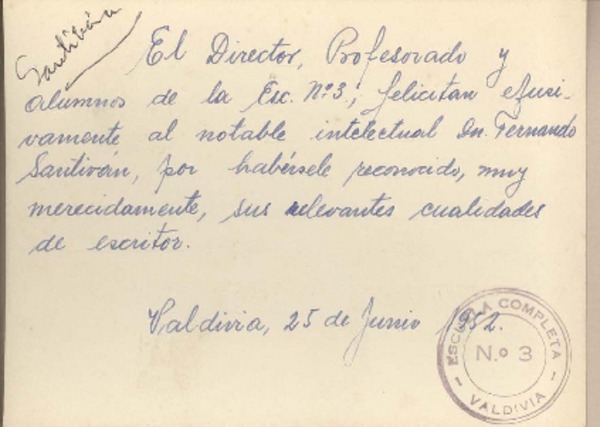 Santiván
El Director, Profesorado y
alumnos de la Esc. Nº3; felicitan efusi-
vamente al notable intelectual Dn. Fernando
Santiván, por habérsele reconocido, muy
merecidamente, sus relevantes cualidades
de escritor.
Valdivia, 25 de Junio 1952.
ESCUELA COMPLETA
N.o 3
— VALDIVIA —